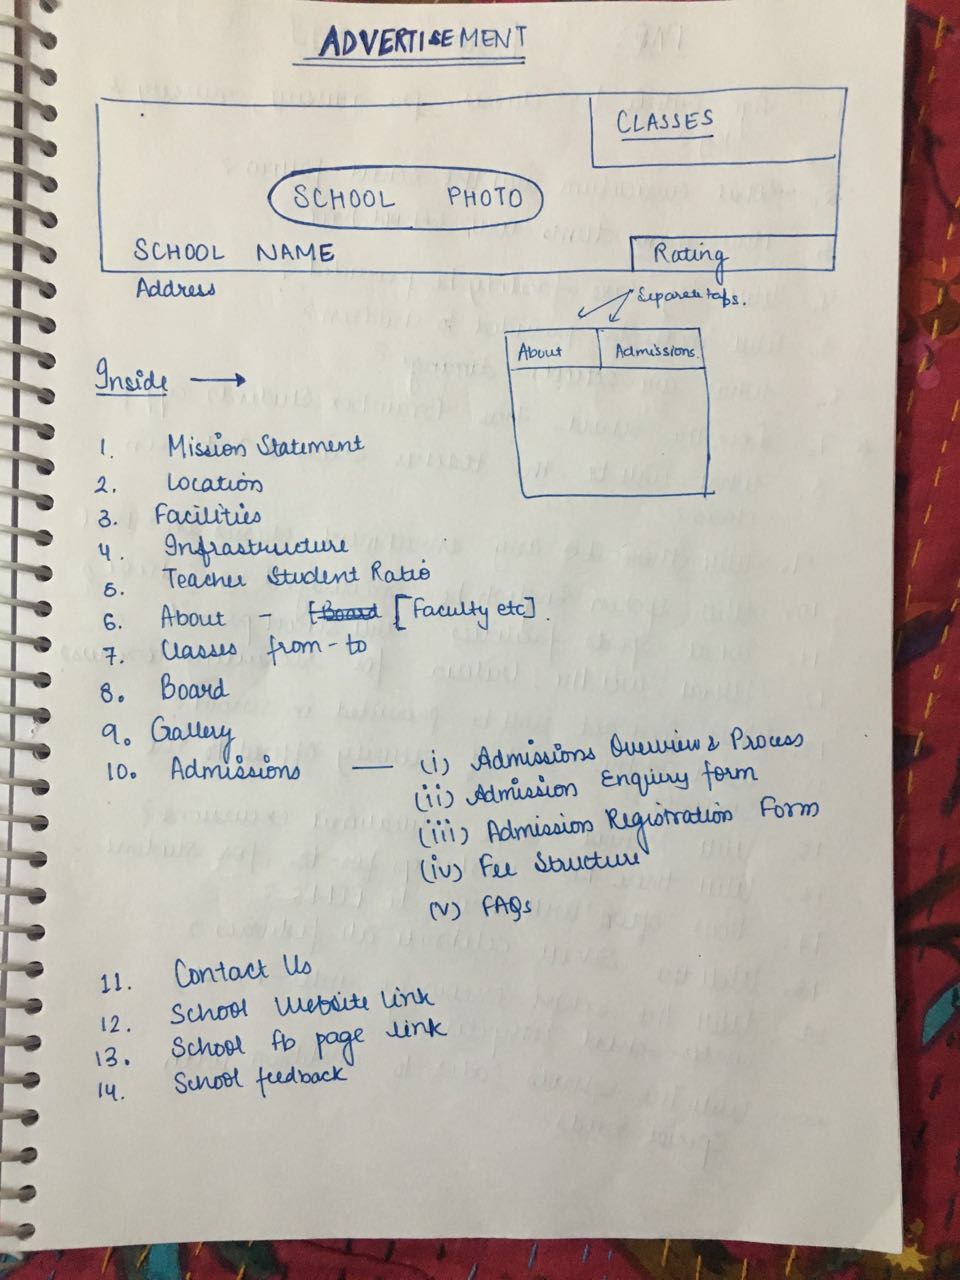 ADVERTISEMENT
CLASSES
SCHOOL PHOTO
SCHOOL NAME
Rating
Address
Separate tabs.
About
Admissions.
Inside →
1. Mission Statement
2. Location
3. Facilities
4. Infrastructure
5. Teacher Student Ratio
6. About - [Board [Faculty etc].
7. Classes from - to
8. Board
9. Gallery
10. Admissions — (i) Admissions Overview & Process
(ii) Admission Enquiry form
(iii) Admission Registration Form
(iv) Fee Structure
(v) FAQs
11. Contact Us
12. School Website link
13. School fb page link
14. School feedback